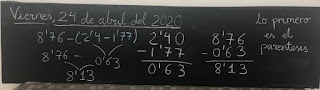 Viernes, 24 de abril del 2020
8'76-(2'4-1'77)
8'76- 0'63
8'13
2'40
-1'77
0'63
8'76
-0'63
8'13
Lo primero
es el
parentesis